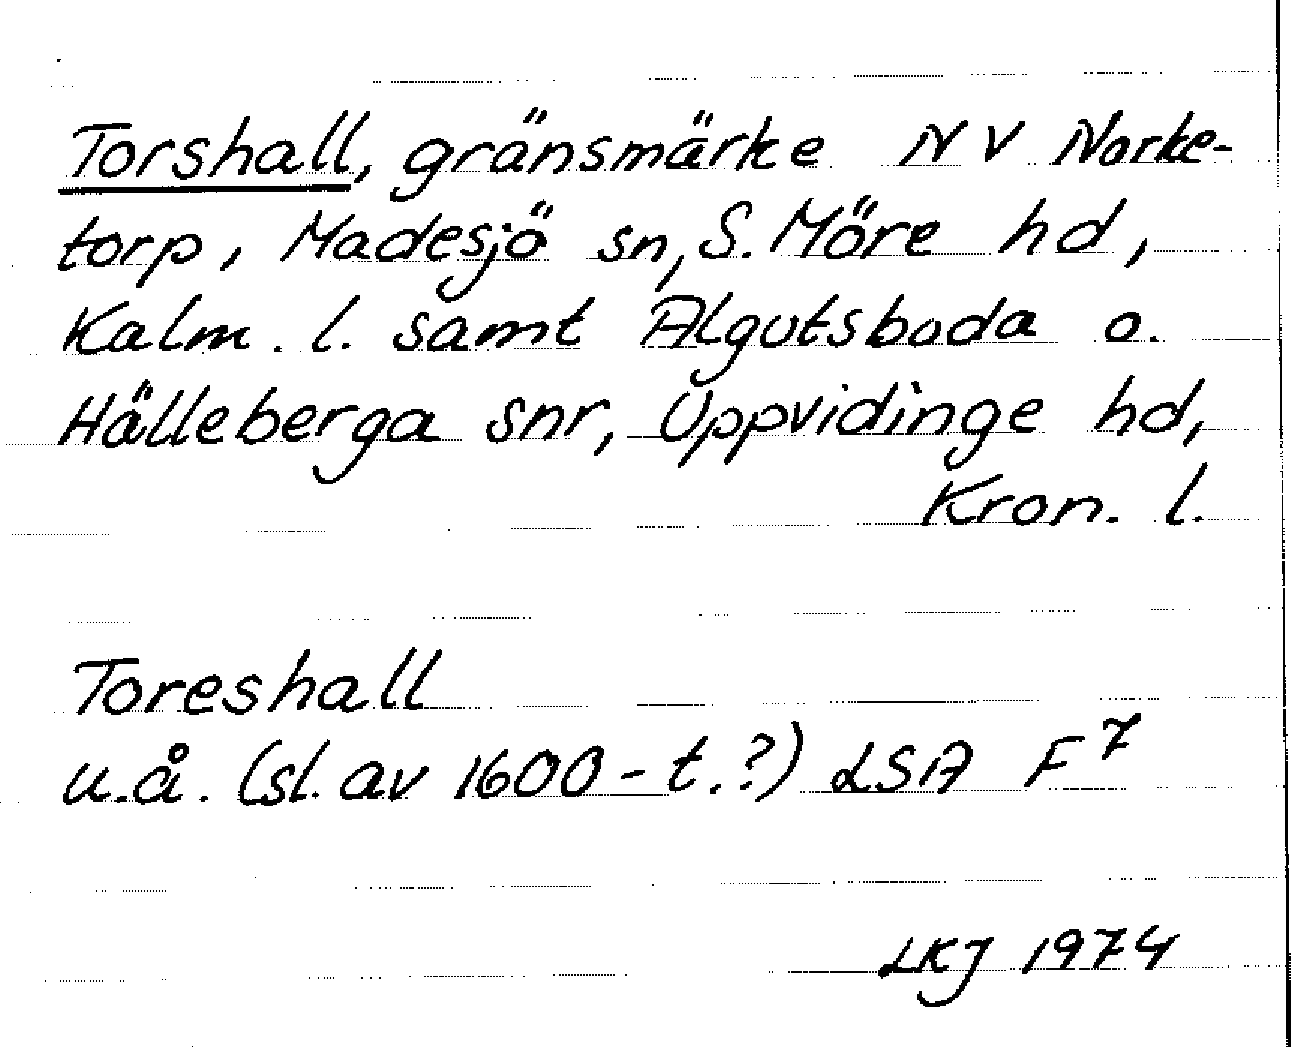 Torshall, gränsmärke NV Norke-
torp, Madesjö sn, S. Möre hd,
Kalm. l. samt Algutsboda o.
Hälleberga snr, Uppvidinge hd,
Kron. l.
Toreshall
u.å. (sl. av 1600-t.?) LSA F⁷
LKJ 1974